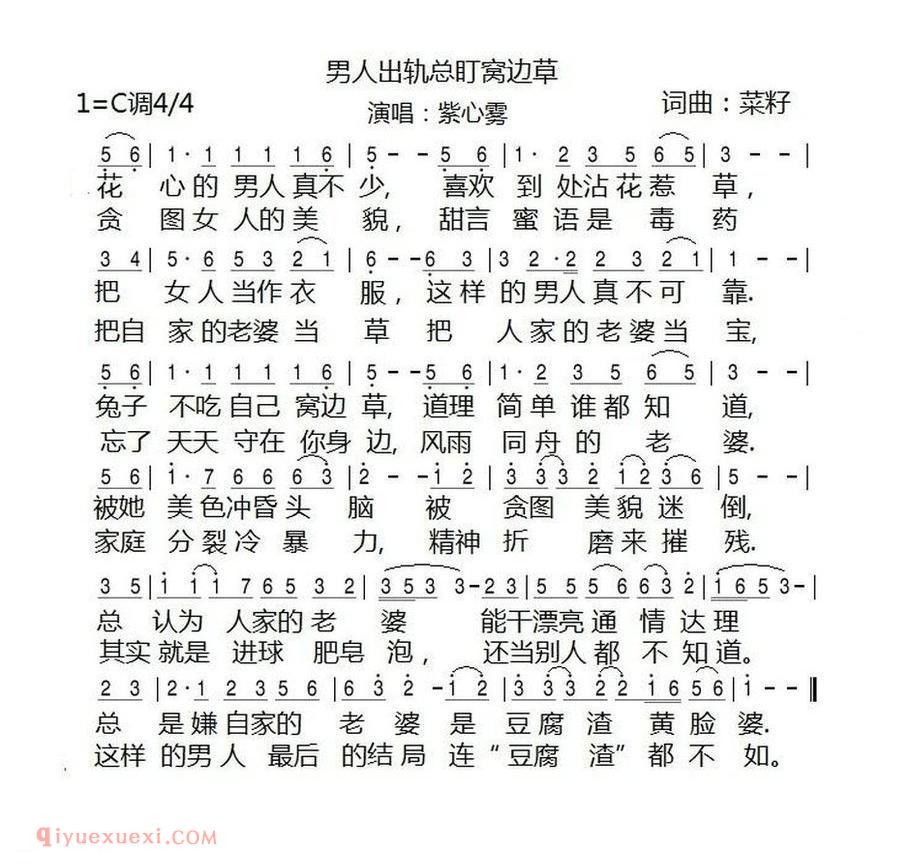 男人出轨总盯窝边草
1=C调4/4
演唱：紫心雾
词曲：菜籽
5 6 | 1· 1 1 1 1 6 | 5 - - 5 6 | 1· 2 3 5 6 5 | 3 - - |
花 心的 男人真不 少, 喜欢 到 处沾花惹 草,
贪 图女 人的美 貌, 甜言 蜜 语是 毒 药
3 4 | 5· 6 5 3 2 1 | 6 - - 6 3 | 3 2·2 2 3 2 1 | 1 - - |
把 女人当作衣 服, 这样 的男人真不可 靠.
把自 家的老婆 当 草 把 人家的老婆当 宝,
5 6 | 1· 1 1 1 1 6 | 5 - - 5 6 | 1· 2 3 5 6 5 | 3 - - |
兔子 不吃自己 窝边 草, 道理 简单谁都知 道,
忘了 天天 守在 你身 边, 风雨 同舟的 老 婆.
5 6 | 1· 7 6 6 6 3 | 2 - - 1 2 | 3 3 3 2 1 2 3 6 | 5 - - |
被她 美色冲昏头 脑 被 贪图 美貌迷 倒,
家庭 分裂冷暴 力, 精神 折 磨来摧 残.
3 5 | 1 1 1 7 6 5 3 2 | 3 5 3 3 - 2 3 | 5 5 5 6 6 3 2 | 1 6 5 3 - |
总 认为 人家的 老 婆 能干漂亮通 情 达 理
其实 就是 进球 肥皂 泡, 还当别人都 不 知道。
2 3 | 2·1 2 3 5 6 | 6 3 2 - 1 2 | 3 3 3 2 2 1 6 5 6 | 1 - - ‖
总 是嫌自家的 老 婆 是 豆 腐 渣 黄脸 婆.
这样 的男人 最后 的结局 连“豆腐 渣”都 不 如。
qiyuexuexi.com